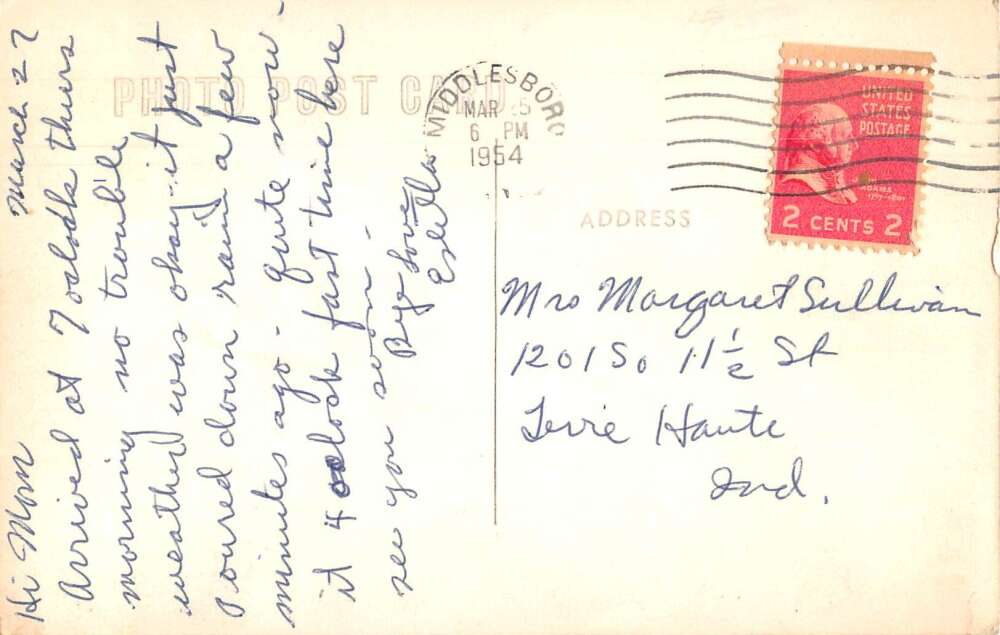 PHOTO POST CARD
Hi Mom
March 27
Arrived at 7 oclock thurs
morning no trouble
weather was okay - it just
Poured down rain a few
minutes ago - quite now -
it 4 oclock fast time here
see you soon -
Bye Love
Estella
MIDDLESBORO
MAR 5
6 PM
1954
UNITED
STATES
POSTAGE
ADAMS
2 CENTS 2
ADDRESS
Mrs Margaret Sullivan
1201 So 11½ St
Terre Haute
Ind.